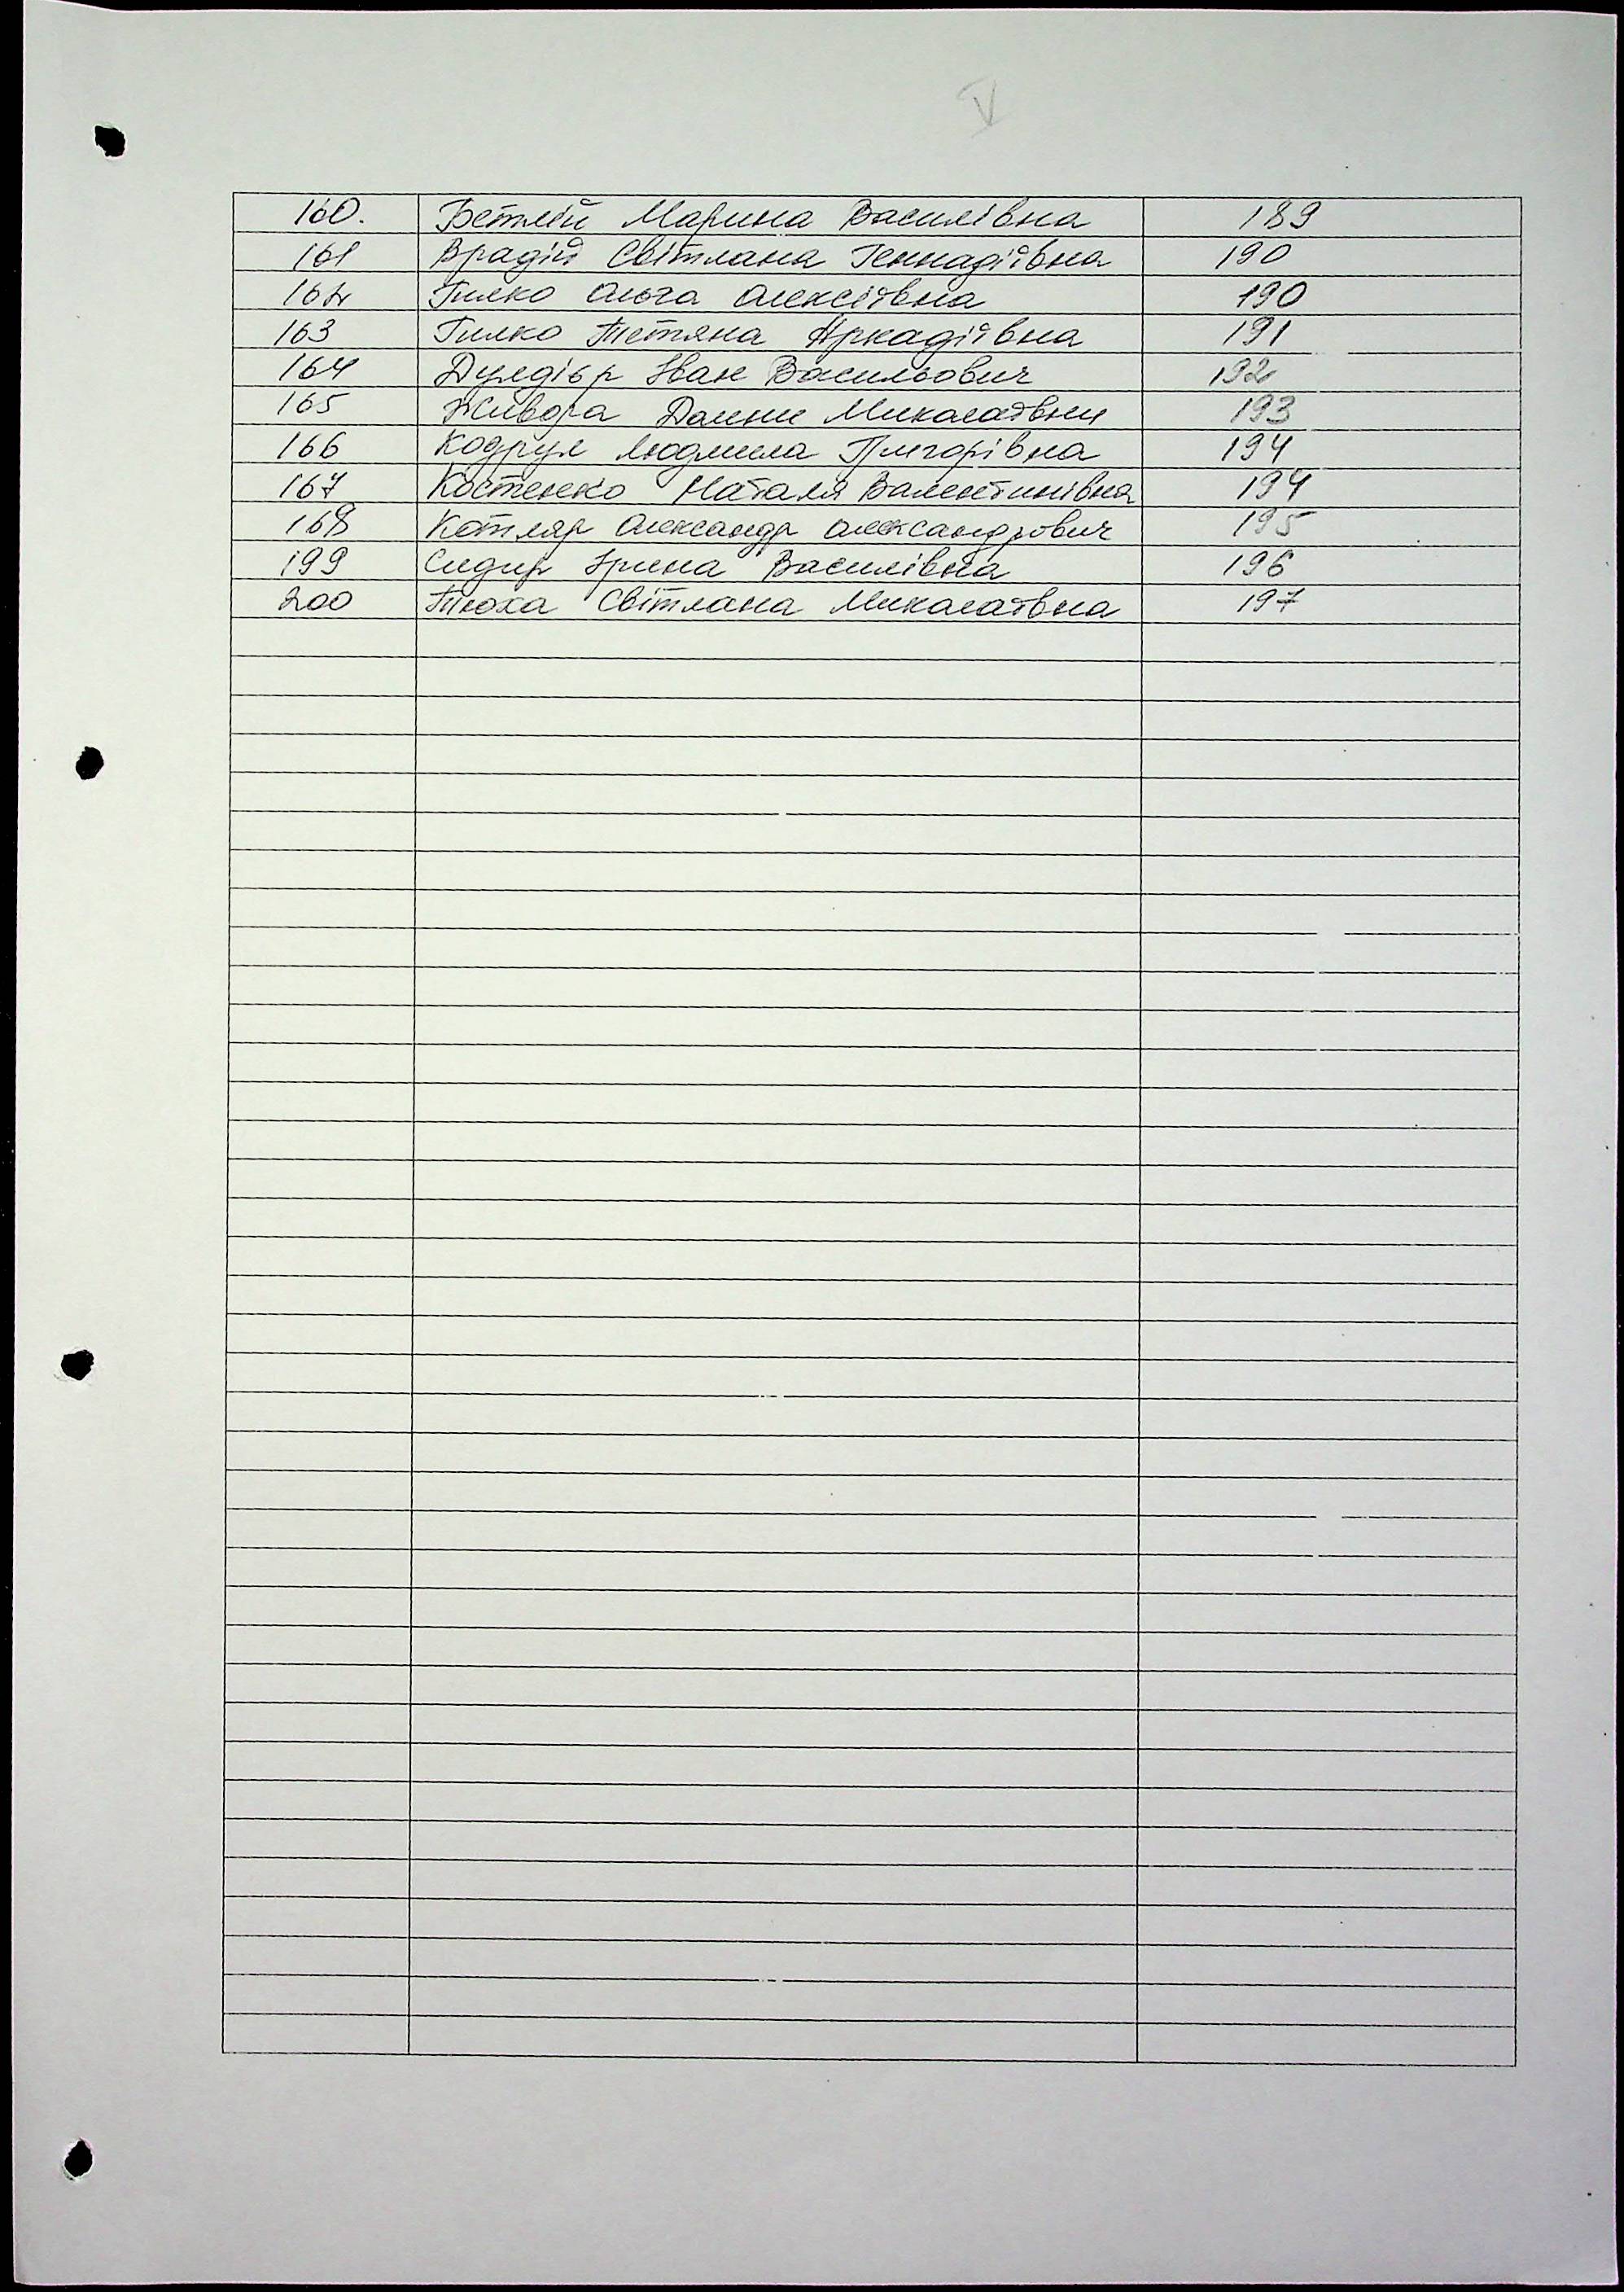 V
160. Бетлій Марина Василівна 189
161 Врадій Світлана Геннадіївна 190
162 Гилко Ольга Олексіївна 190
163 Гилко Тетяна Аркадіївна 191
164 Дулдієр Іван Васильович 192
165 Живора Микалаївни 193
166 Кодрул Людмила Григорівна 194
167 Костенко Наталя Валентинівна 194
168 Котляр Олександр Олександрович 195
199 Сидир Ірина Василівна 196
200 Тюха Світлана Микалаївна 197